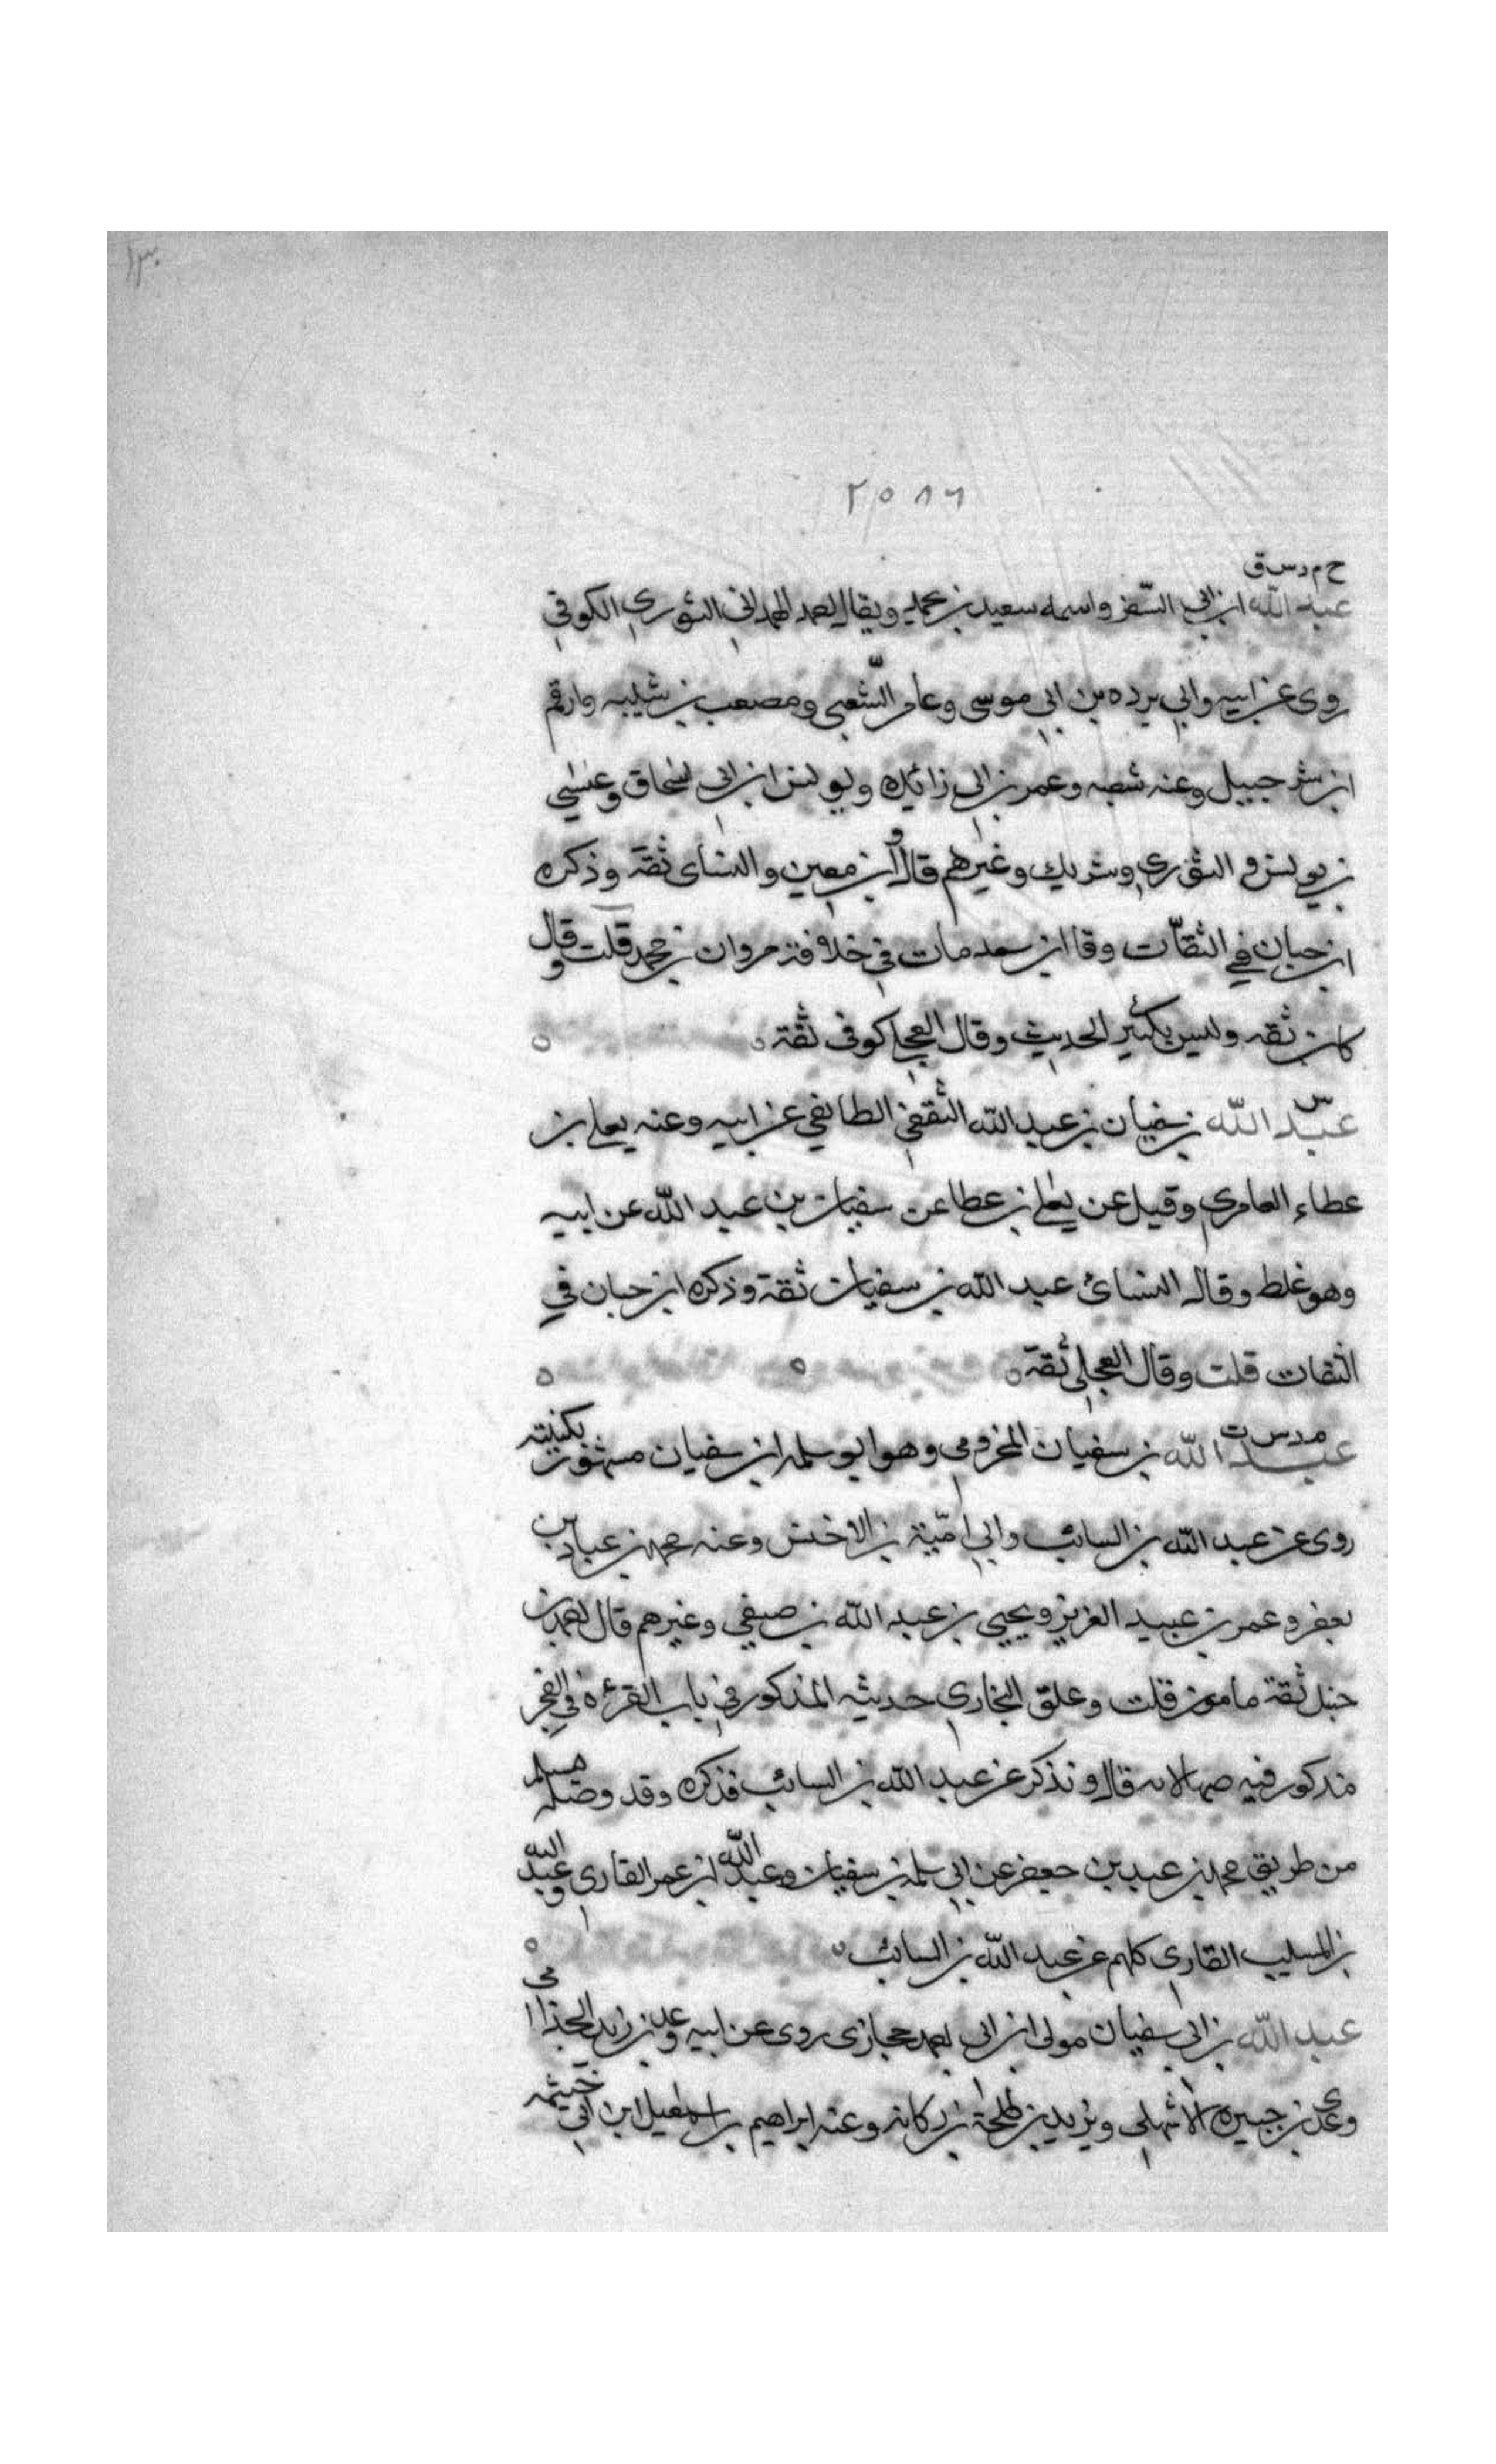 ١٣٠
٢٥٨٦
خ م د س ق
عبد الله ابن ابي السفر واسمه سعيد بن محمد ويقال احمد الهمداني الثوري الكوفي
روى عن ابيه وابي برده بن ابي موسى وعامر الشعبي ومصعب بن شيبه وارقم
ابن شرحبيل وعنه شعبه وعمر بن ابي زائده ويونس ابن ابي اسحاق وعيسى
بن يونس و الثوري وشريك وغيرهم قال ابن معين والنساى ثقة وذكره
ابن حبان في الثقات وقا ابن سعد مات في خلافة مروان بن محمد قلت وقال
كان ثقه وليس بكثير الحديث وقال العجلي كوفي ثقة
س
عبد الله بن سفيان بن عبد الله الثقفي الطايفي عن ابيه وعنه يعلى بن
عطاء العامري وقيل عن يعلى بن عطا عن سفيان بن عبد الله عن ابيه
وهو غلط وقال النسائ عبد الله بن سفيان ثقة وذكره ابن حبان في
الثقات قلت وقال العجلي ثقة
م د س ت
عبد الله بن سفيان المخزومي وهو ابو سلمه ابن سفيان مشهور بكنيته
روى عن عبد الله بن السائب وابي امية بن الاخنس وعنه محمد بن عباد بن
جعفر وعمر بن عبيد العزيز ويحيى بن عبد الله بن صيفي وغيرهم قال احمد بن
حنبل ثقة مامون قلت وعلق البخاري حديثه المذكور في باب القرءة في الفجر
مذكور فيه قال ونذكر عن عبد الله بن السائب فذكره وقد وصله مسلم
من طريق محمد بن عبيد بن جعفر عن ابي سلمة بن سفيان وعبد الله ابن عمر القاري وعبد الله
بن المسيب القاري كلهم عن عبد الله بن السائب
عبد الله بن ابي سفيان مولى ابن ابي احمد حجازي روى عن ابيه وعدي بن زيد الجذامي
وعدي بن جبيره الاشهلي ويزيد بن طلحة بن ركانه وعنه ابراهيم بن اسمعيل ابن ابي حبيبه